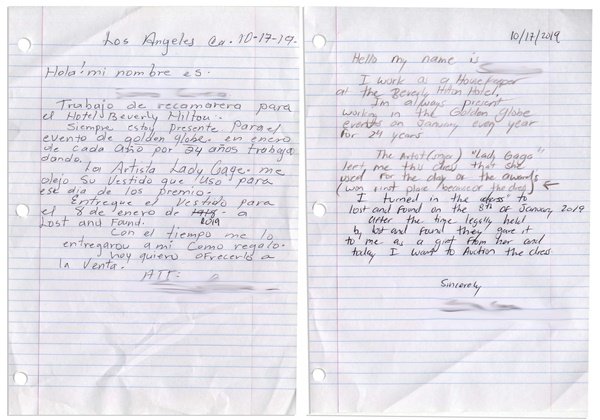 Los Angeles Ca. 10-17-19.
Hola! mi nombre es.
Trabajo de recamarera para
el Hotel Beverly Hiltou.
Siempre estoy presente para el
evento de golden globe. en enero
de cada año por 24 años trabaja
dando.
La Artista Lady Gage. me
dejo su vestido que uso para
ese dia de los premio.
Entregue el vestido para
el 8 de enero de 2019 a
Lost and Fand.
Con el tiempo me lo
entregarou a mi como regalo.
hoy quiero ofrecerlo a
la venta.
ATT:
10/17/2019
Hello my name is
I work as a Housekeeper
at the Beverly Hilton Hotel.
I'm always present
working in the Golden globe
events on January every year
for 24 years
The Artist (singer) "Lady Gaga"
left me this dress that she
used for the day of the awards
(win first place because of the dress) ←
I turned in the dress to
lost and found on the 8th of January 2019
after the time legally held
by lost and found they gave it
to me as a gift from her and
today I want to Auction the dress
Sincerely